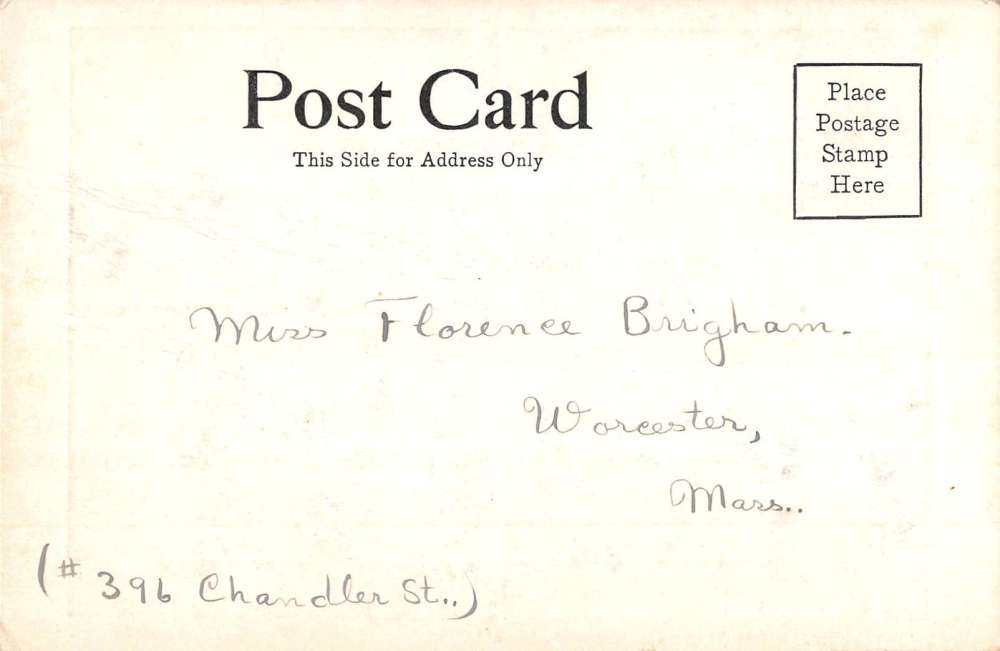 Post Card
This Side for Address Only
Place
Postage
Stamp
Here
Miss Florence Brigham.
Worcester,
Mass..
(# 396 Chandler St..)